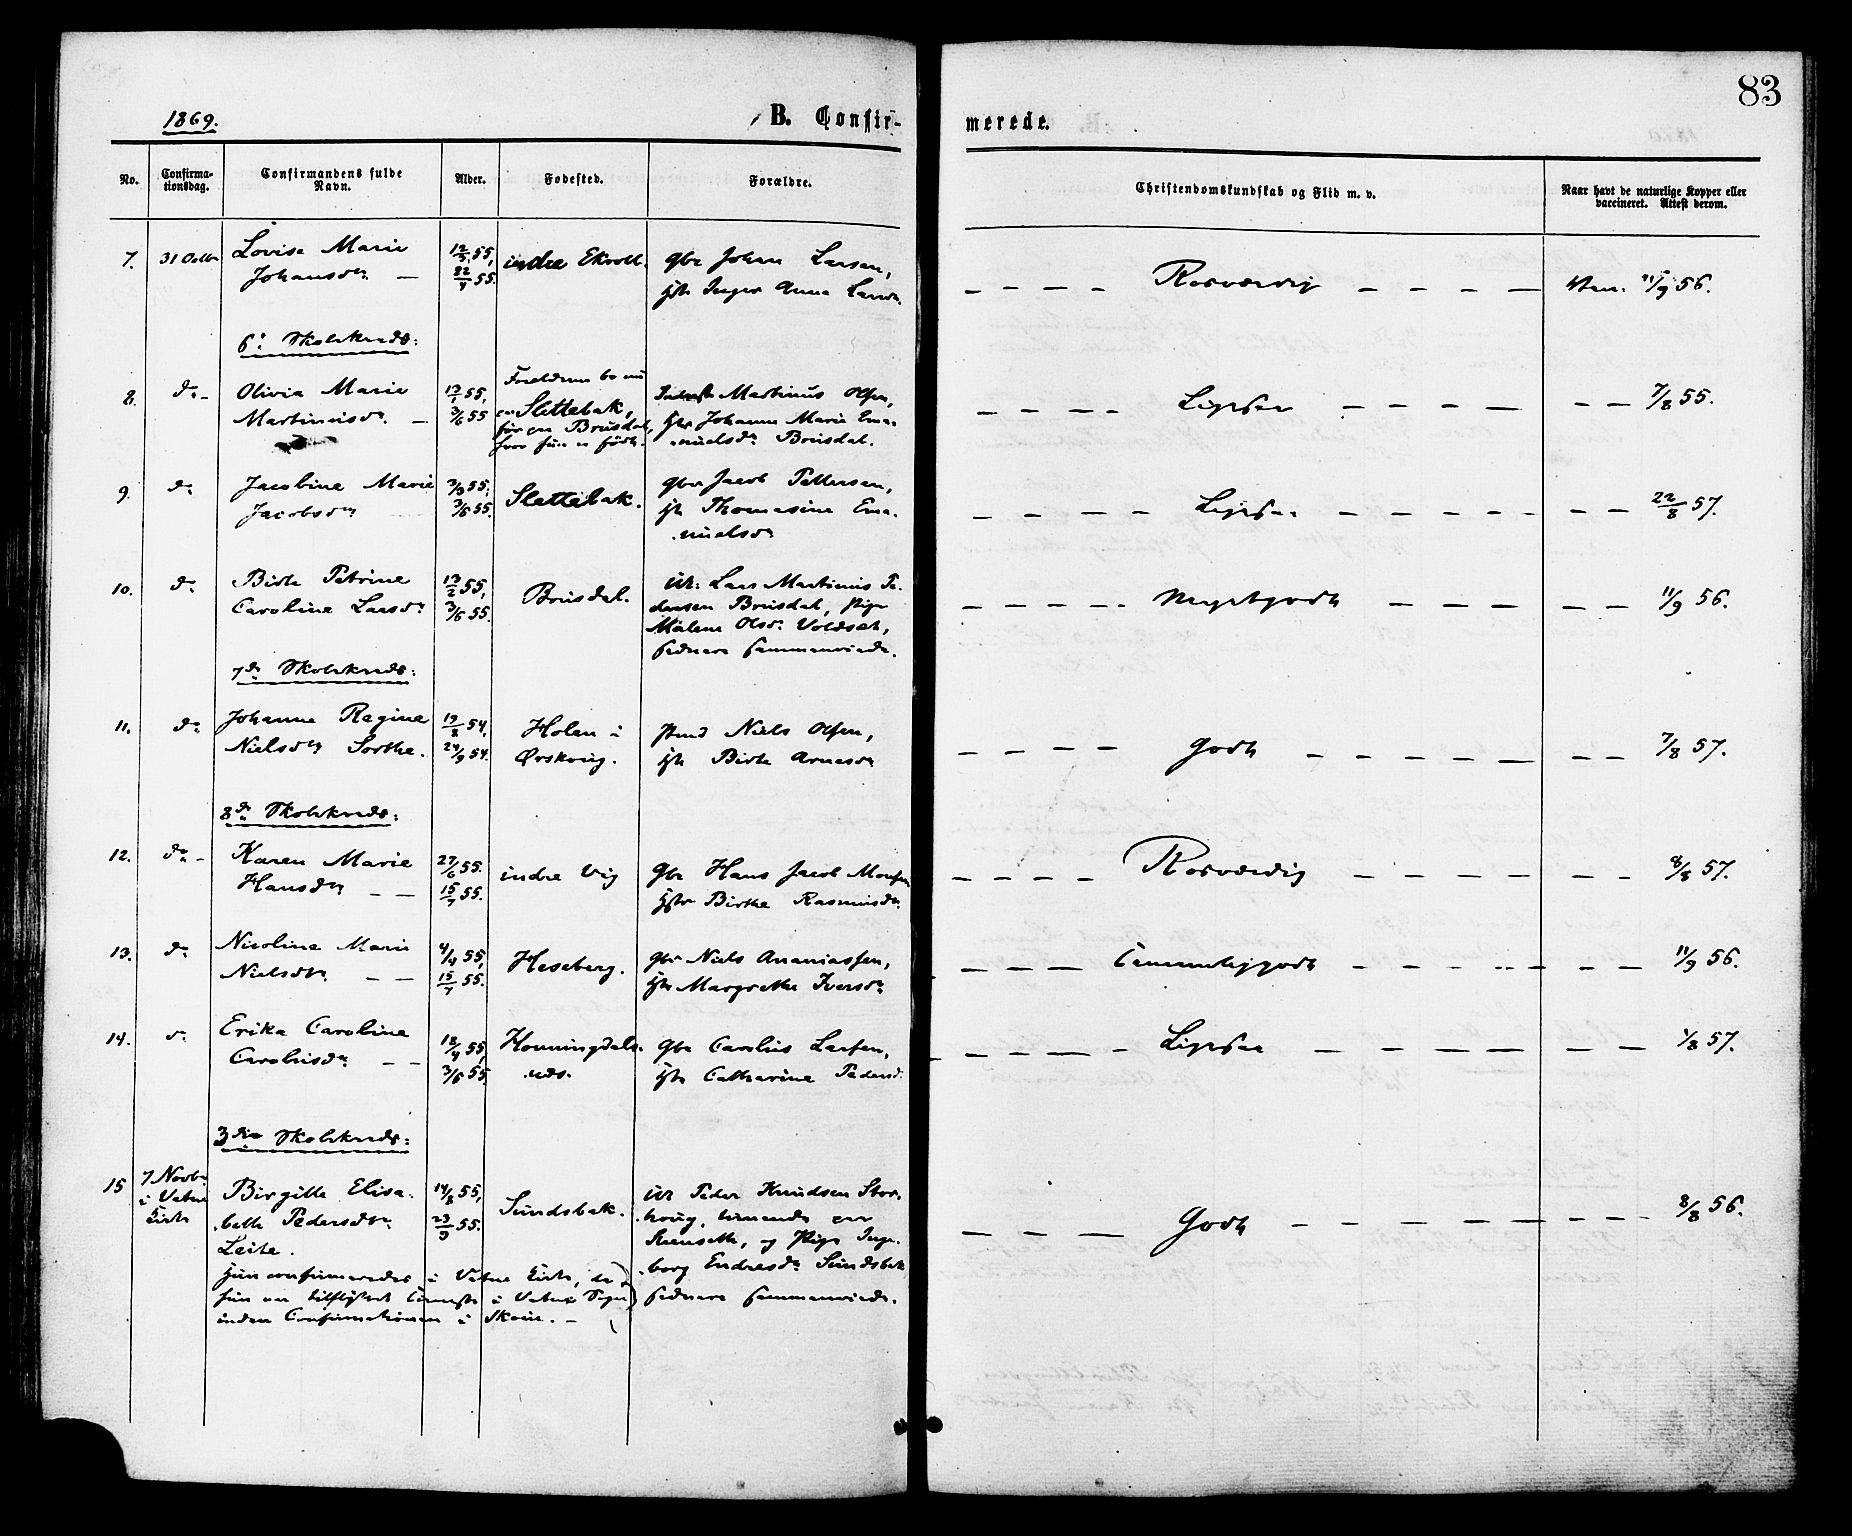 83
1869.
B. Confir-
merede.
No.
Confirma-
tionsdag.
Confirmandens fulde
Navn.
Alder.
Fødested.
Forældre.
Christendomskundskab og Flid m. v.
Naar havt de naturlige Kopper eller
vaccineret. Attest derom.
7.
31 Octbr
Lovise Marie
Johansdr
12/5 55,
22/7 55.
indre Ekroll.
Gbr Johan Larsen,
Hstr Inger Anna Larsdr
Rosværdig
11/9 56.
6te Skolekreds:
8.
do
Olivia Marie
Martinusdr
13/1 55,
3/6 55
Forældrene bo nu
paa Slettebak,
før paa Brusdal,
hvor hun er født.
Martinus Olsen,
Hstr Johanne Marie Ema-
nuelsdr Brusdal.
Ligesaa
7/8 55.
9.
do
Jacobine Marie
Jacobsdr
3/3 55,
3/6 55.
Slettebak.
Gbr Jacob Pettersen,
Hstr Thomasine Ema-
nuelsdr
Ligesaa
22/8 57.
10.
do
Birte Petrine
Caroline Larsdr
13/2 55,
3/6 55.
Brusdal.
Ux: Lars Martinus Pe-
dersen Brusdal, Pige
Malene Olsdr Voldsæt,
sednere sammenviede.
Megetgodt
11/9 56.
7de Skolekreds:
11.
do
Johanne Regine
Nielsdr Sorthe.
19/8 54,
24/9 54.
Holen i
Ørskoug.
Hmd Niels Olsen,
Hstr Birte Arnesdr
Godt
7/8 57.
8de Skolekreds:
12.
do
Karen Marie
Hansdr
27/6 55.
15/7 55.
indre Vig
Gbr Hans Jacob Monsen
Hstr Birthe Rasmusdr
Rosværdig
8/8 57.
13.
do
Nicoline Marie
Nielsdr
4/4 55,
15/7 55.
Heseberg.
Gbr Niels Ananiassen,
Hstr Margrethe Iversdr
Temmeligodt
11/9 56.
14.
do
Erika Caroline
Carolusdr
18/4 55,
3/6 55
Honningdals-
nds.
Gbr Carolus Larsen,
Hstr Catharine Pedersd.
Ligesaa
1/8 57.
3die Skolekreds:
15
7 Novbr
i Vatne
Kirke
Birgitte Elisa-
beth Pedersdr
Leite.
14/8 55,
23/9 55.
Sundsbak.
Ux Peder Knudsen Stor-
houg, tienende paa
og Pige Inge-
borg Endresdr Sundsbak
sednere sammenviede.
Hun confirmeredes i Vatne Kirke, da
hun var tilflyttet Tieneste i Vatne Sogn
inden Confirmationen i Skoue.
Godt
8/8 56.